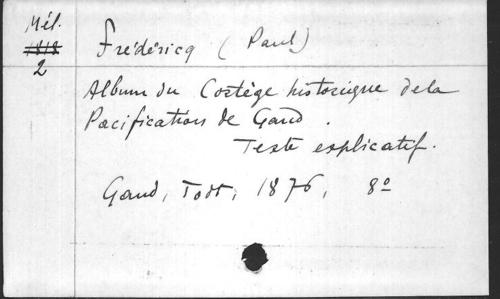 Mél.
1818
2
Frédéricq (Paul)
Album du Cortège historique de la
Pacification de Gand.
Texte explicatif.
Gand, Todt, 1876, 8º